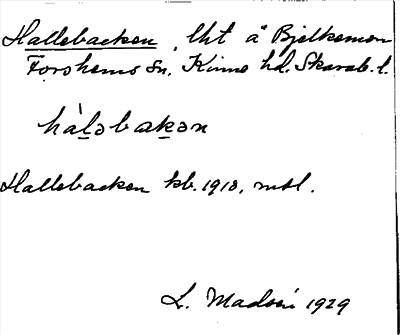 Hallebacken, lht å Bjelkemon
Forshems sn, Kinne hd. Skarab. l.
hàləbakən
Hallebacken kb. 1918, mtl.
L. Madsén 1929